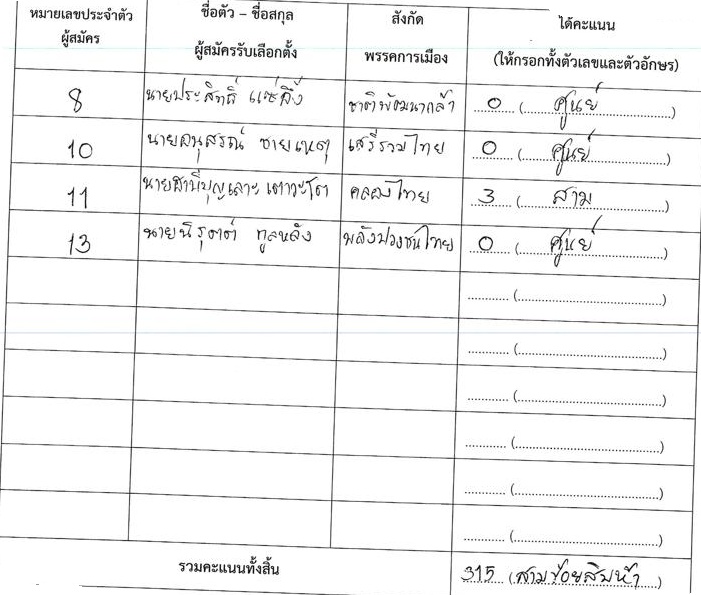 หมายเลขประจำตัว ผู้สมัคร ชื่อตัว – ชื่อสกุล ผู้สมัครรับเลือกตั้ง สังกัด พรรคการเมือง ได้คะแนน (ให้กรอกทั้งตัวเลขและตัวอักษร)
8 นายประสิทธิ์ แซ่ลิ้ง ชาติพัฒนากล้า 0 (ศูนย์)
10 นายอนุสรณ์ ชายเหตุ เสรีรวมไทย 0 (ศูนย์)
11 คลองไทย 3 (สาม)
13 นายนิรุตต์ ทูลหลัง พลังปวงชนไทย 0 (ศูนย์)
รวมคะแนนทั้งสิ้น 315 (สามร้อยสิบห้า)